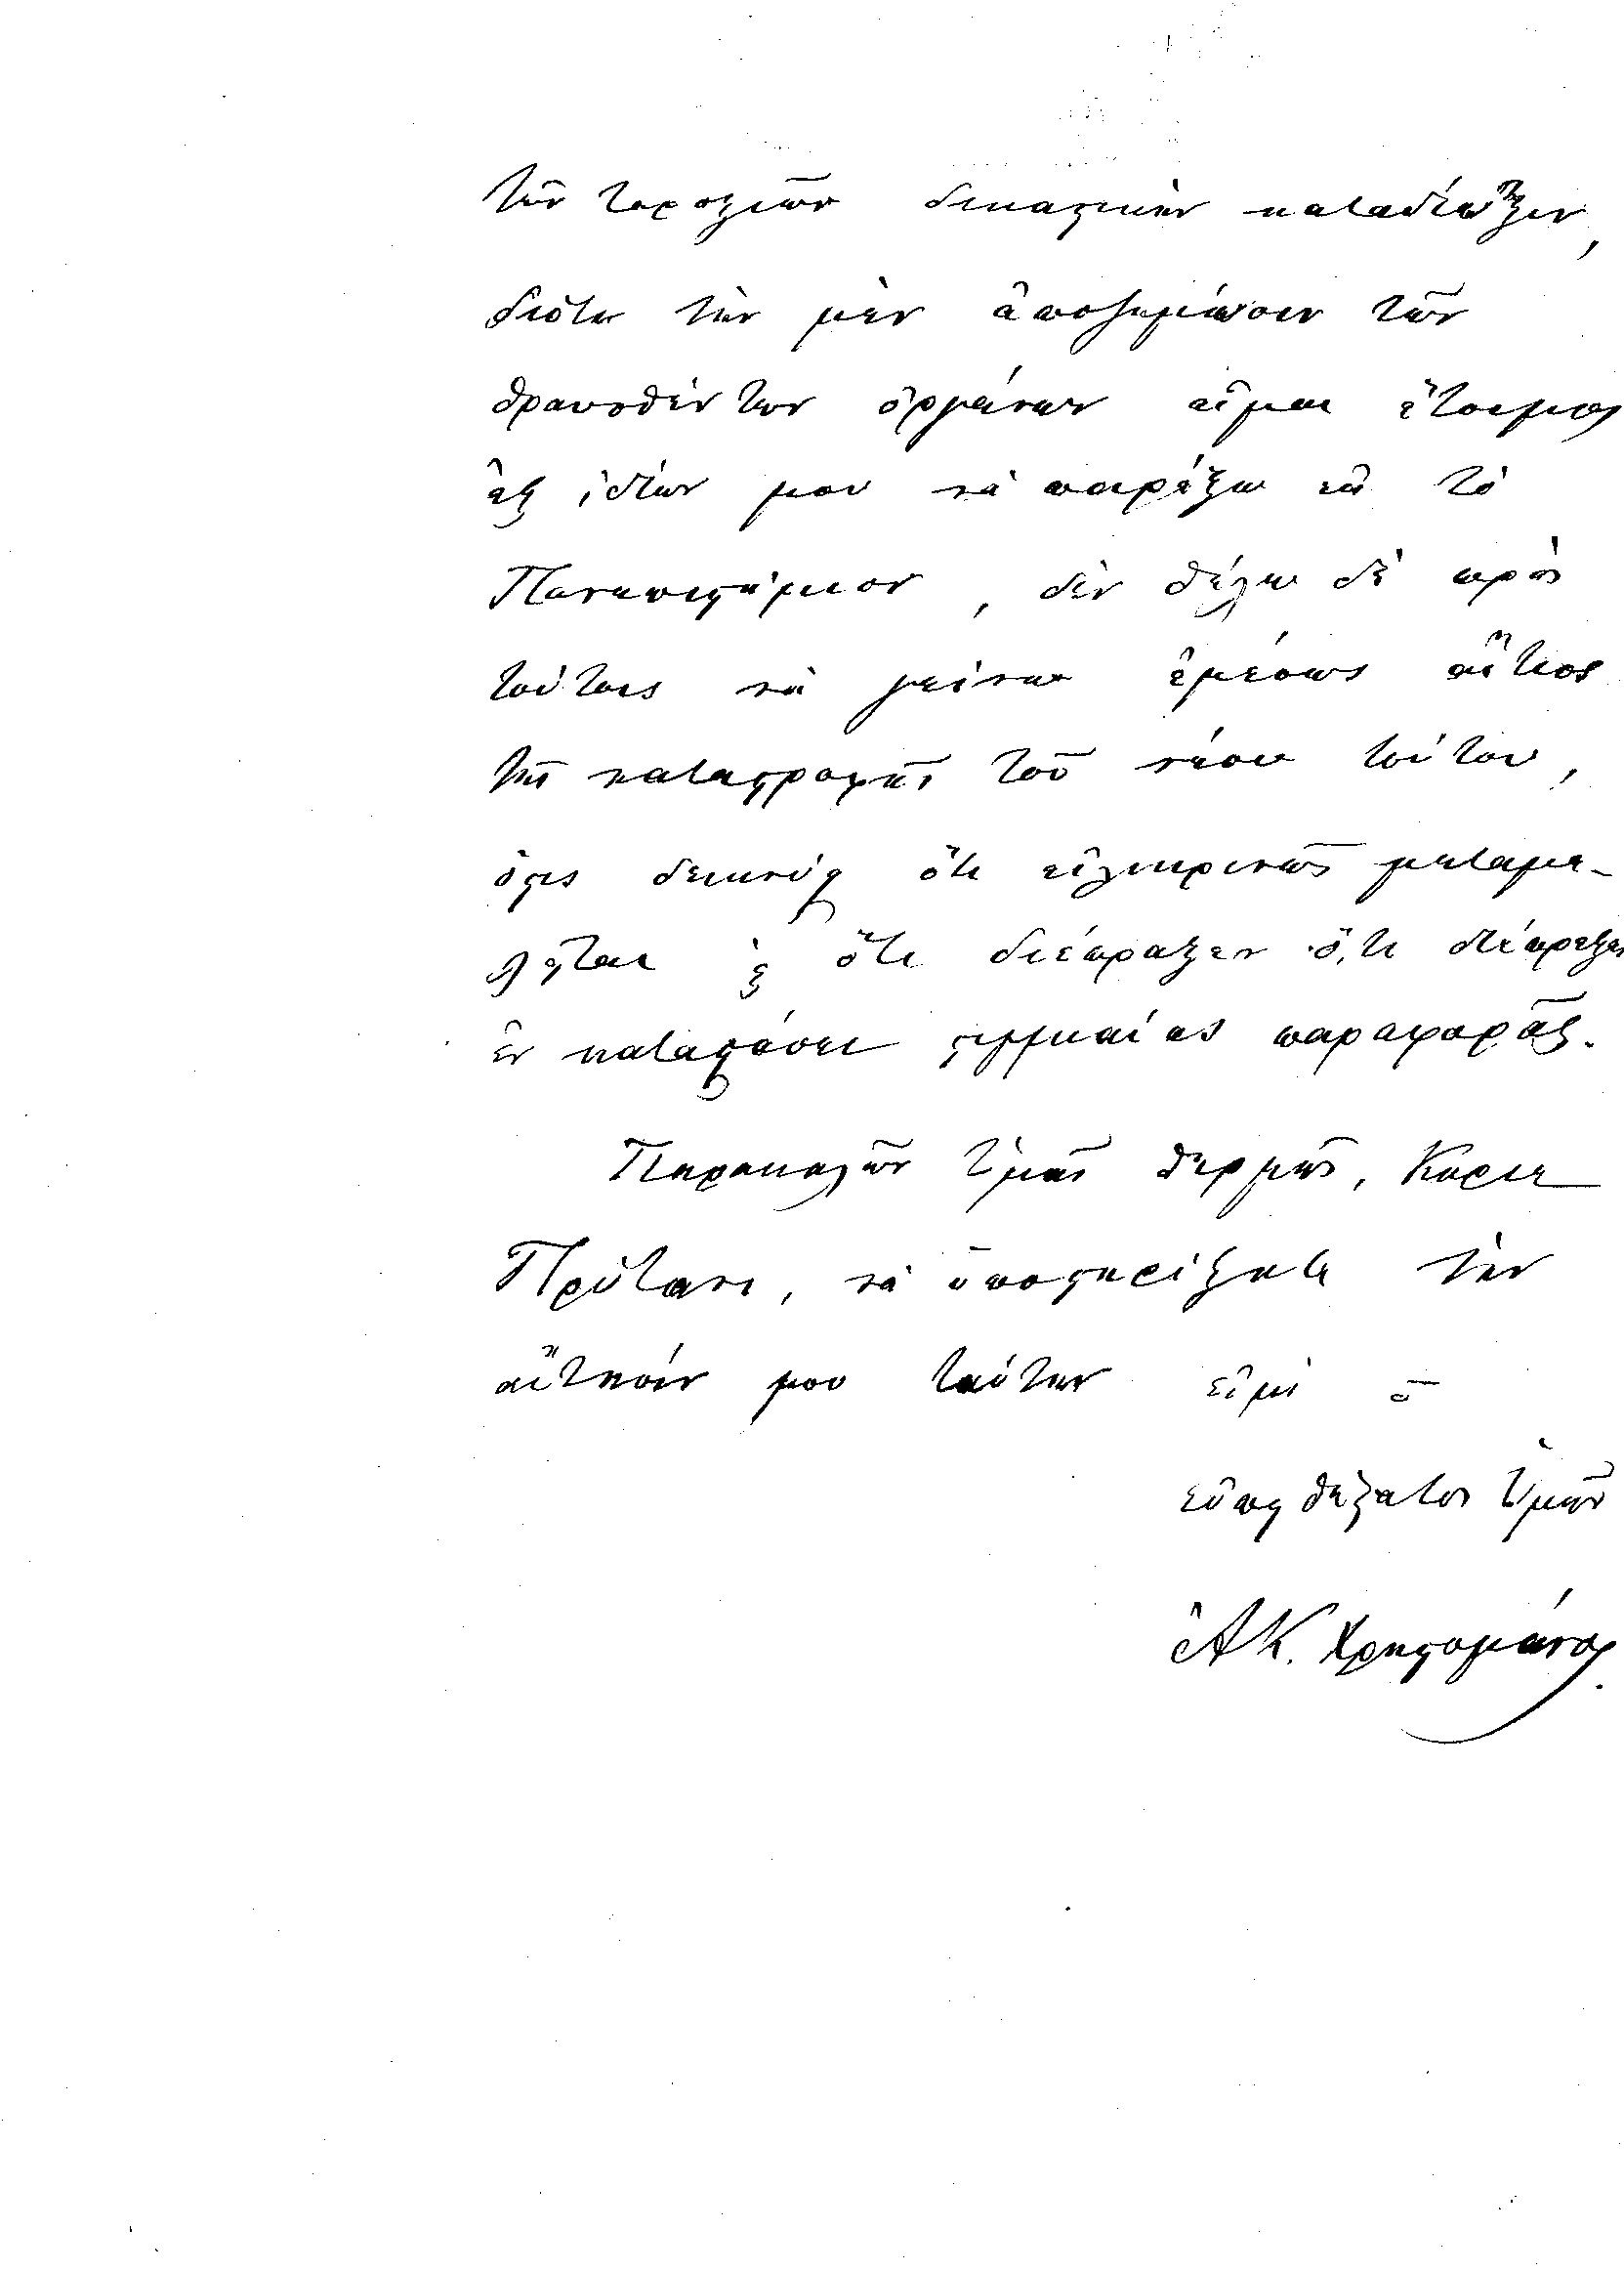 τῶν ταραξιῶν δικαστικὴν καταδίωξιν,
διότι τὴν μὲν ἀποζημίωσιν τῶν
θραυσθέντων ὀργάνων εἶμαι ἕτοιμος
ἐξ ἰδίων μου νὰ παρέξω εἰς τὸ
Πανεπιστήμιον, δὲν θέλω δὲ πρὸς
τούτοις νὰ γείνω ἐμμέσως αἴτιος
τῆς καταστροφῆς τοῦ νέου τούτου,
ὅστις δεικνύει ὅτι εἰλικρινῶς μεταμε-
λεῖται καὶ ὅτι διέπραξεν ὅ,τι διέπραξεν
ἐν καταστάσει στιγμιαίας παραφορᾶς.
Παρακαλῶν Ὑμᾶς θερμῶς, Κύριε
Πρύτανι, νὰ ὑποστηρίξητε τὴν
αἴτησίν μου ταύτην εἰμὶ ὁ
εὐπειθέστατος Ὑμῶν
Ἀ Κ. Χρηστομάνος